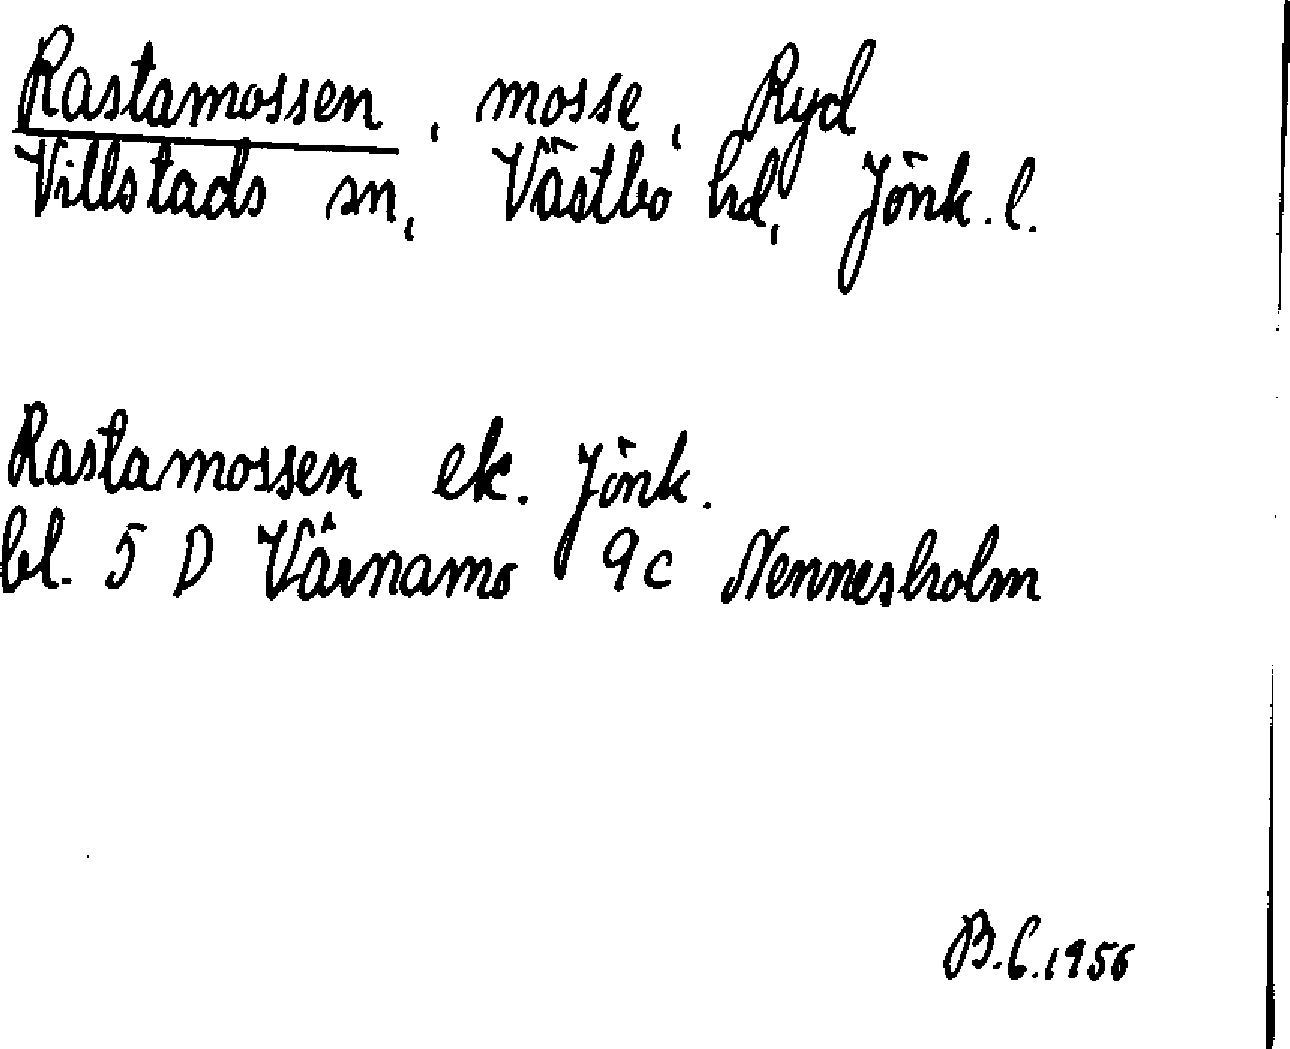 Rastamossen, mosse, Ryd
Villstads sn, Västbo hd, Jönk. l.
Rastamossen ek. Jönk.
bl. 5 D Värnamo 9c Nennesholm
B.C. 1956